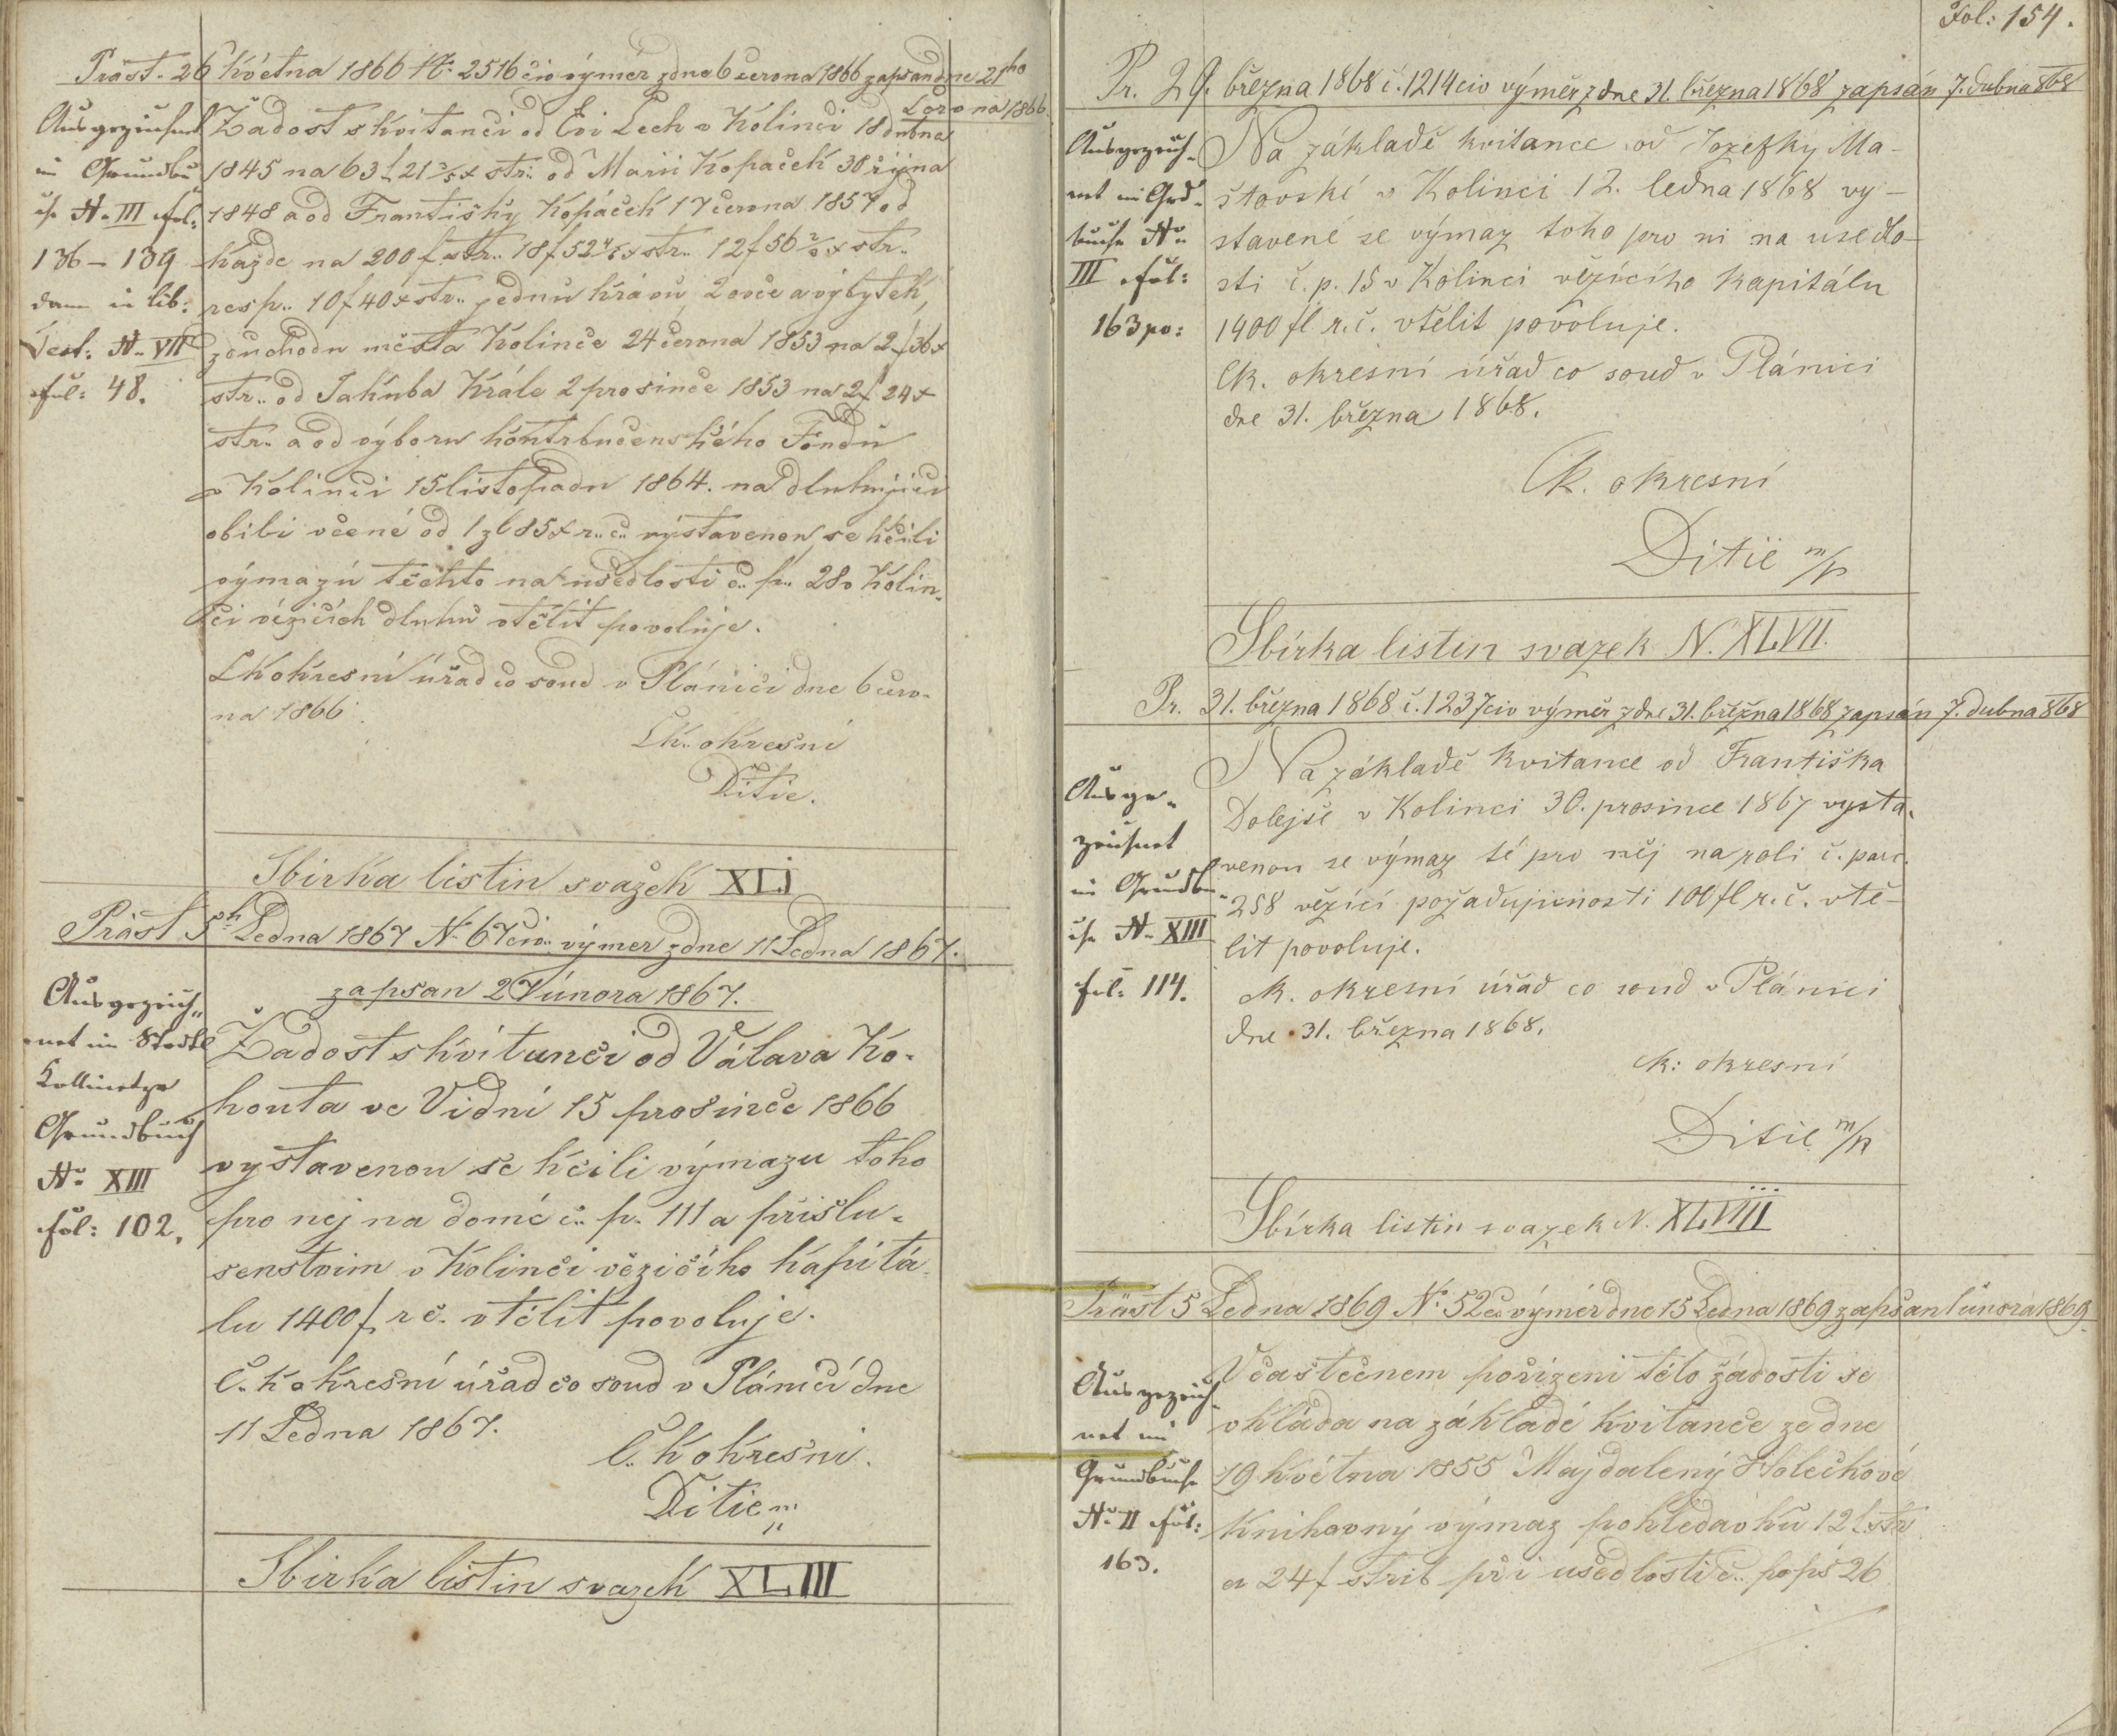 Präst. 26 Května 1866 N: 2516 civ výměr z dne 6 června 1866 zapsan dne 21ho
Června 1866
Ausgezeichnet
im Grundbu
che N. III fol:
136 – 139
dann in lib:
Test: N. VII
fol: 48.
Žadost s kvitanci od Evi Lech v Kolinci 18 dubna
1845 na 63 f 21 3/5 x str. od Marii Kopaček 30 října
1848 a od Františky Kopáček 17 června 1857 od
každe na 200 f str.. 18 f 52 4/5 x str.. 12 f 56 2/5 x str..
resp.. 10 f 40 x str.. jednu krávu, 2 ovce a výbytek,
z duchodu města Kolince 24 června 1853 na 2 f 36 x
str.. od Jakuba Krále 2 prosince 1853 na 2 f 24 x
str.. a od výboru kontribučenského Fondu
v Kolinci 15 listopadu 1864. na dlužnjici
obili věcné od 1 zl 85 x r.. č.. výstavenou se kčili
výmazú těchto na usedlosti č.. p.. 28 v Kolin-
ci vězicích dluhu vtělit povoluje.
C k okresní úřad co soud v Plánici dne 6 červ-
na 1866.
C k.. okresní
Ditie.
Sbirka listin svazek XLI
Präst 5h Ledna 1867 N: 67 civ.. výmer z dne 11 Ledna 1867.
zapsan 27 února 1867.
Ausgezeich-
net im Stadtl
Kollinetzer
Grundbuch
No XIII
fol: 102.
Žadost s kvitanci odVálava Ko-
houta ve Vidni 15 prosince 1866
vystavenou se kčili výmazu toho
pro nej na domě č.. p. 111 a přislu-
senstvim v Kolinci vězičiho kapitá-
lu 1400 f r č. vtělit povoluje.
C. k okresní úřad co soud v Plánici dne
11 Ledna 1867.
C. k okresni.
Ditie m
Sbirka listin svazek XLIII
Fol: 154.
Pr. 29. března 1868 č. 1214 civ výměr z dne 31. března 1868 zapsán 7. dubna 868
Ausgezeich-
net im Grd-
buche No
III fol:
163 po:
Na základě kvitance od Jozefky Ma-
štovské v Kolinci 12. ledna 1868 vy-
stavené se výmaz toho pro ni na usedlo-
sti č. p. 15 v Kolinci vězícího kapitálu
1400 fl r. č. vtělit povoluje.
Ck. okresní úřad co soud v Plánici
dne 31. března 1868.
Ck. okresní
Ditie m/p
Sbírka listin svazek N. XLVII.
Pr. 31. března 1868 č. 1237 civ výměr z dne 31. března 1868 zapsán 7. dubna 868
Ausge-
zeichnet
im Grundbu-
che No XIII
fol: 114.
Na základě kvitance od Františka
Dolejše v Kolinci 30. prosince 1867 vysta-
venou se výmaz té pro něj na roli č. parc.
258 vězící požadujicnosti 100 fl r. č. vtě-
lit povoluje.
ck. okresní úřad co soud v Plánici
dne 31. března 1868.
ck: okresní
Ditie m/p
Sbírka listin svazek N. XLVIII
Präst 5 Ledna 1869 N: 52 civ výměr dne 15 Ledna 1869 zapsan 1 února 1869.
Ausgezeich-
net im
Grundbuche
No II fol:
163.
V častečnem pořizeni této žádosti se
vkláda na základě kvitanče ze dne
19 května 1855 Majdaleny Holečkové
knihovný výmaz pohledavku 12 f. str
a 24 f střib při usedlosti č.. pops 26